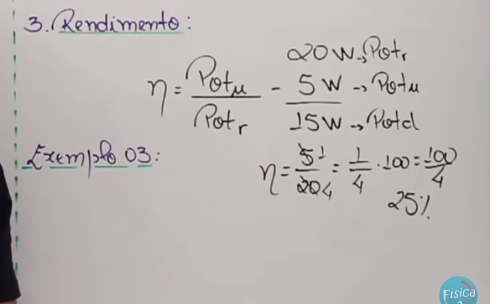 3. Rendimento:
η = Potu / Potr
20W → Potr
- 5W → Potu
15W → Potd
Exemplo 03:
η = 5 1 / 20 4 = 1/4 · 100 = 100/4
25%
Física